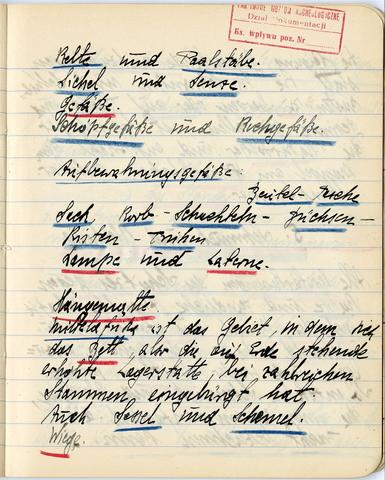 PAŃSTWOWE MUZEUM ARCHEOLOGICZNE
Dział Dokumentacji
Ks. wpływu poz. Nr
Kelte und Paalstäbe.
Sichel und Sense.
Gefäße.
Schöpfgefäße und Kochgefäße.
Aufbewahrungsgefäße:
Beutel - Tasche
Sack Korb - Schachteln - Büchsen -
Kisten - Truhen
Lampe und Laterne.
Hängematte.
ist das Gebiet, in dem sich
das Bett, also die auf Erde stehende
erhöhte Lagerstatt, bei zahlreichen
Stämmen eingebürgt hat.
Auch Sessel und Schemel.
Wiege.